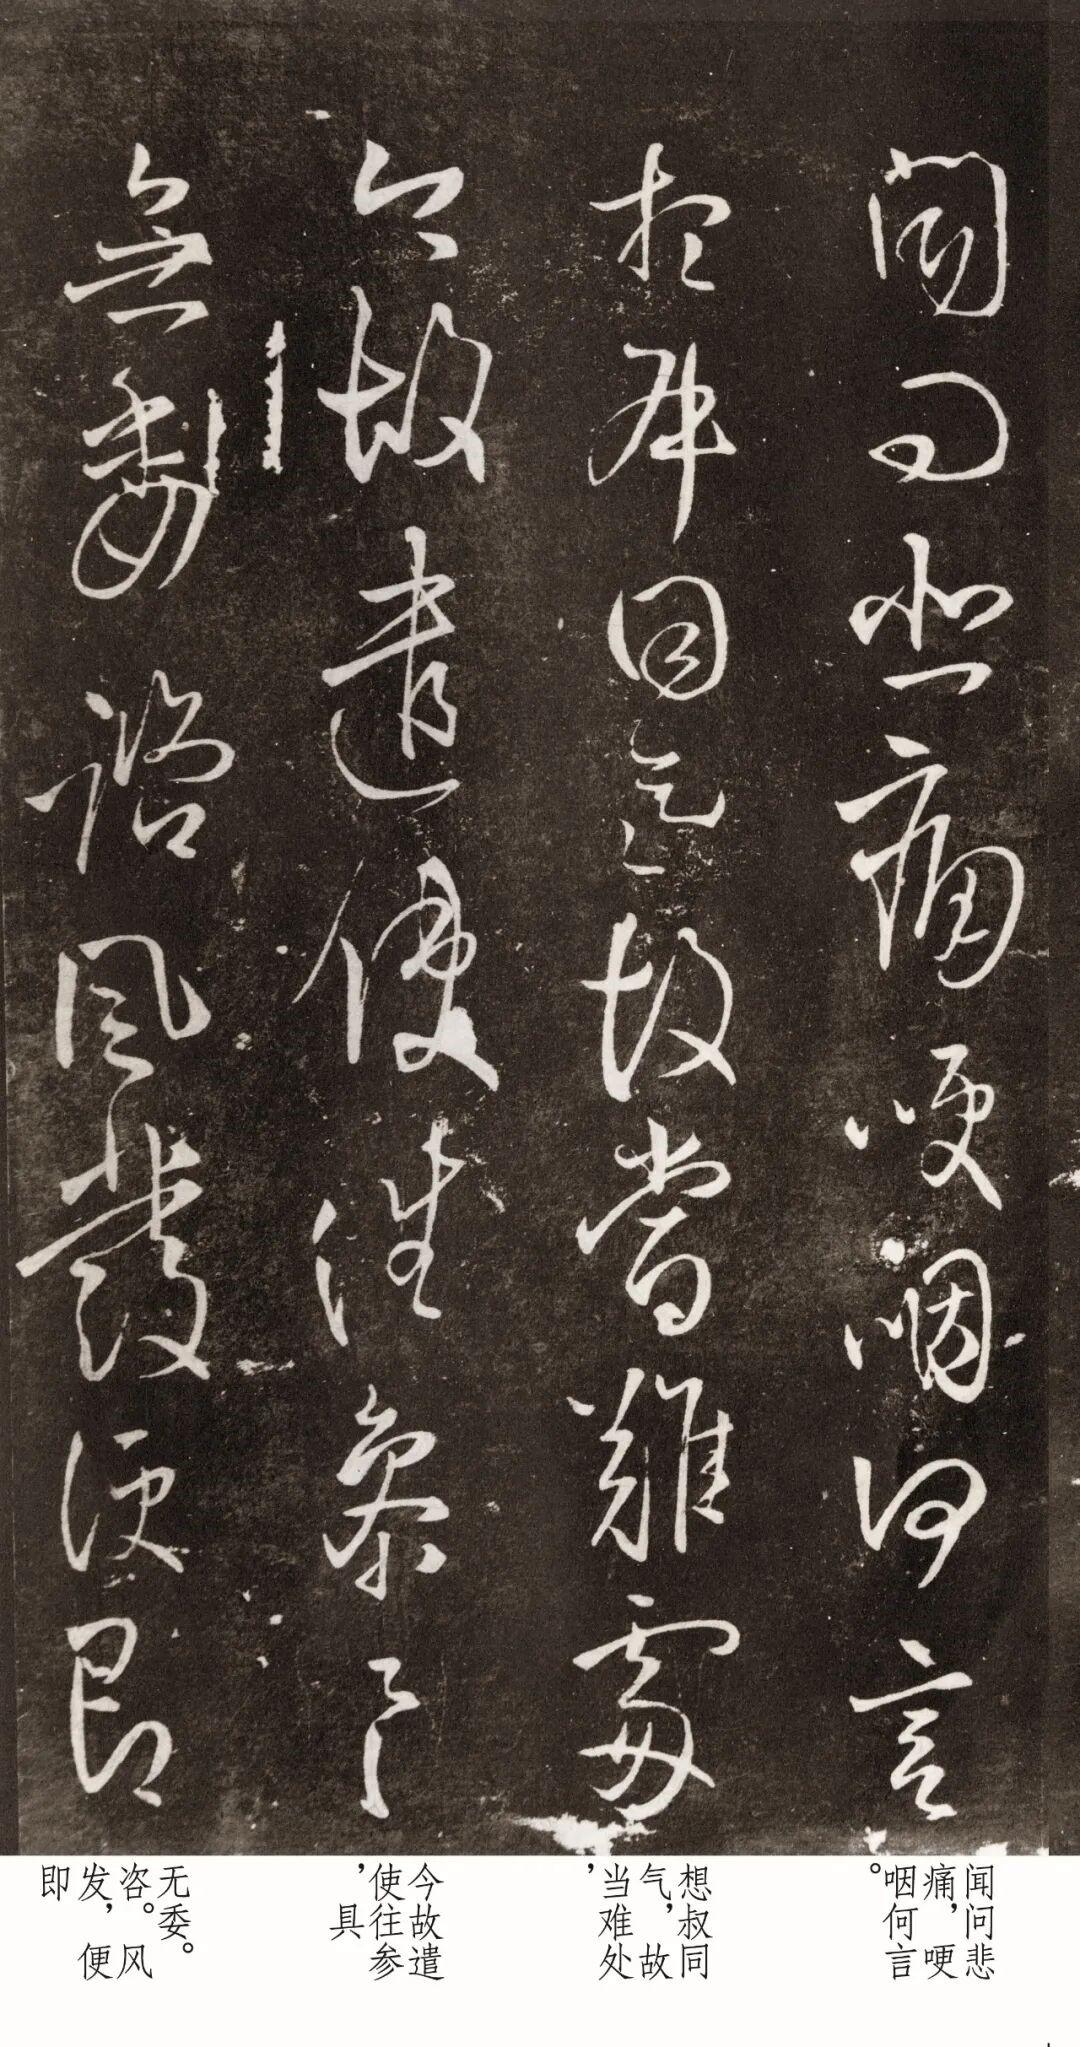 聞問悲痛哽咽何言
想叔同氣故當難處
今故遣使往參具
無委諮風發便即
闻问悲
痛，哽
咽何言。
想叔同
气，故
当难处，
今故遣
使往参
，具
无委。
咨。风
发，便
即